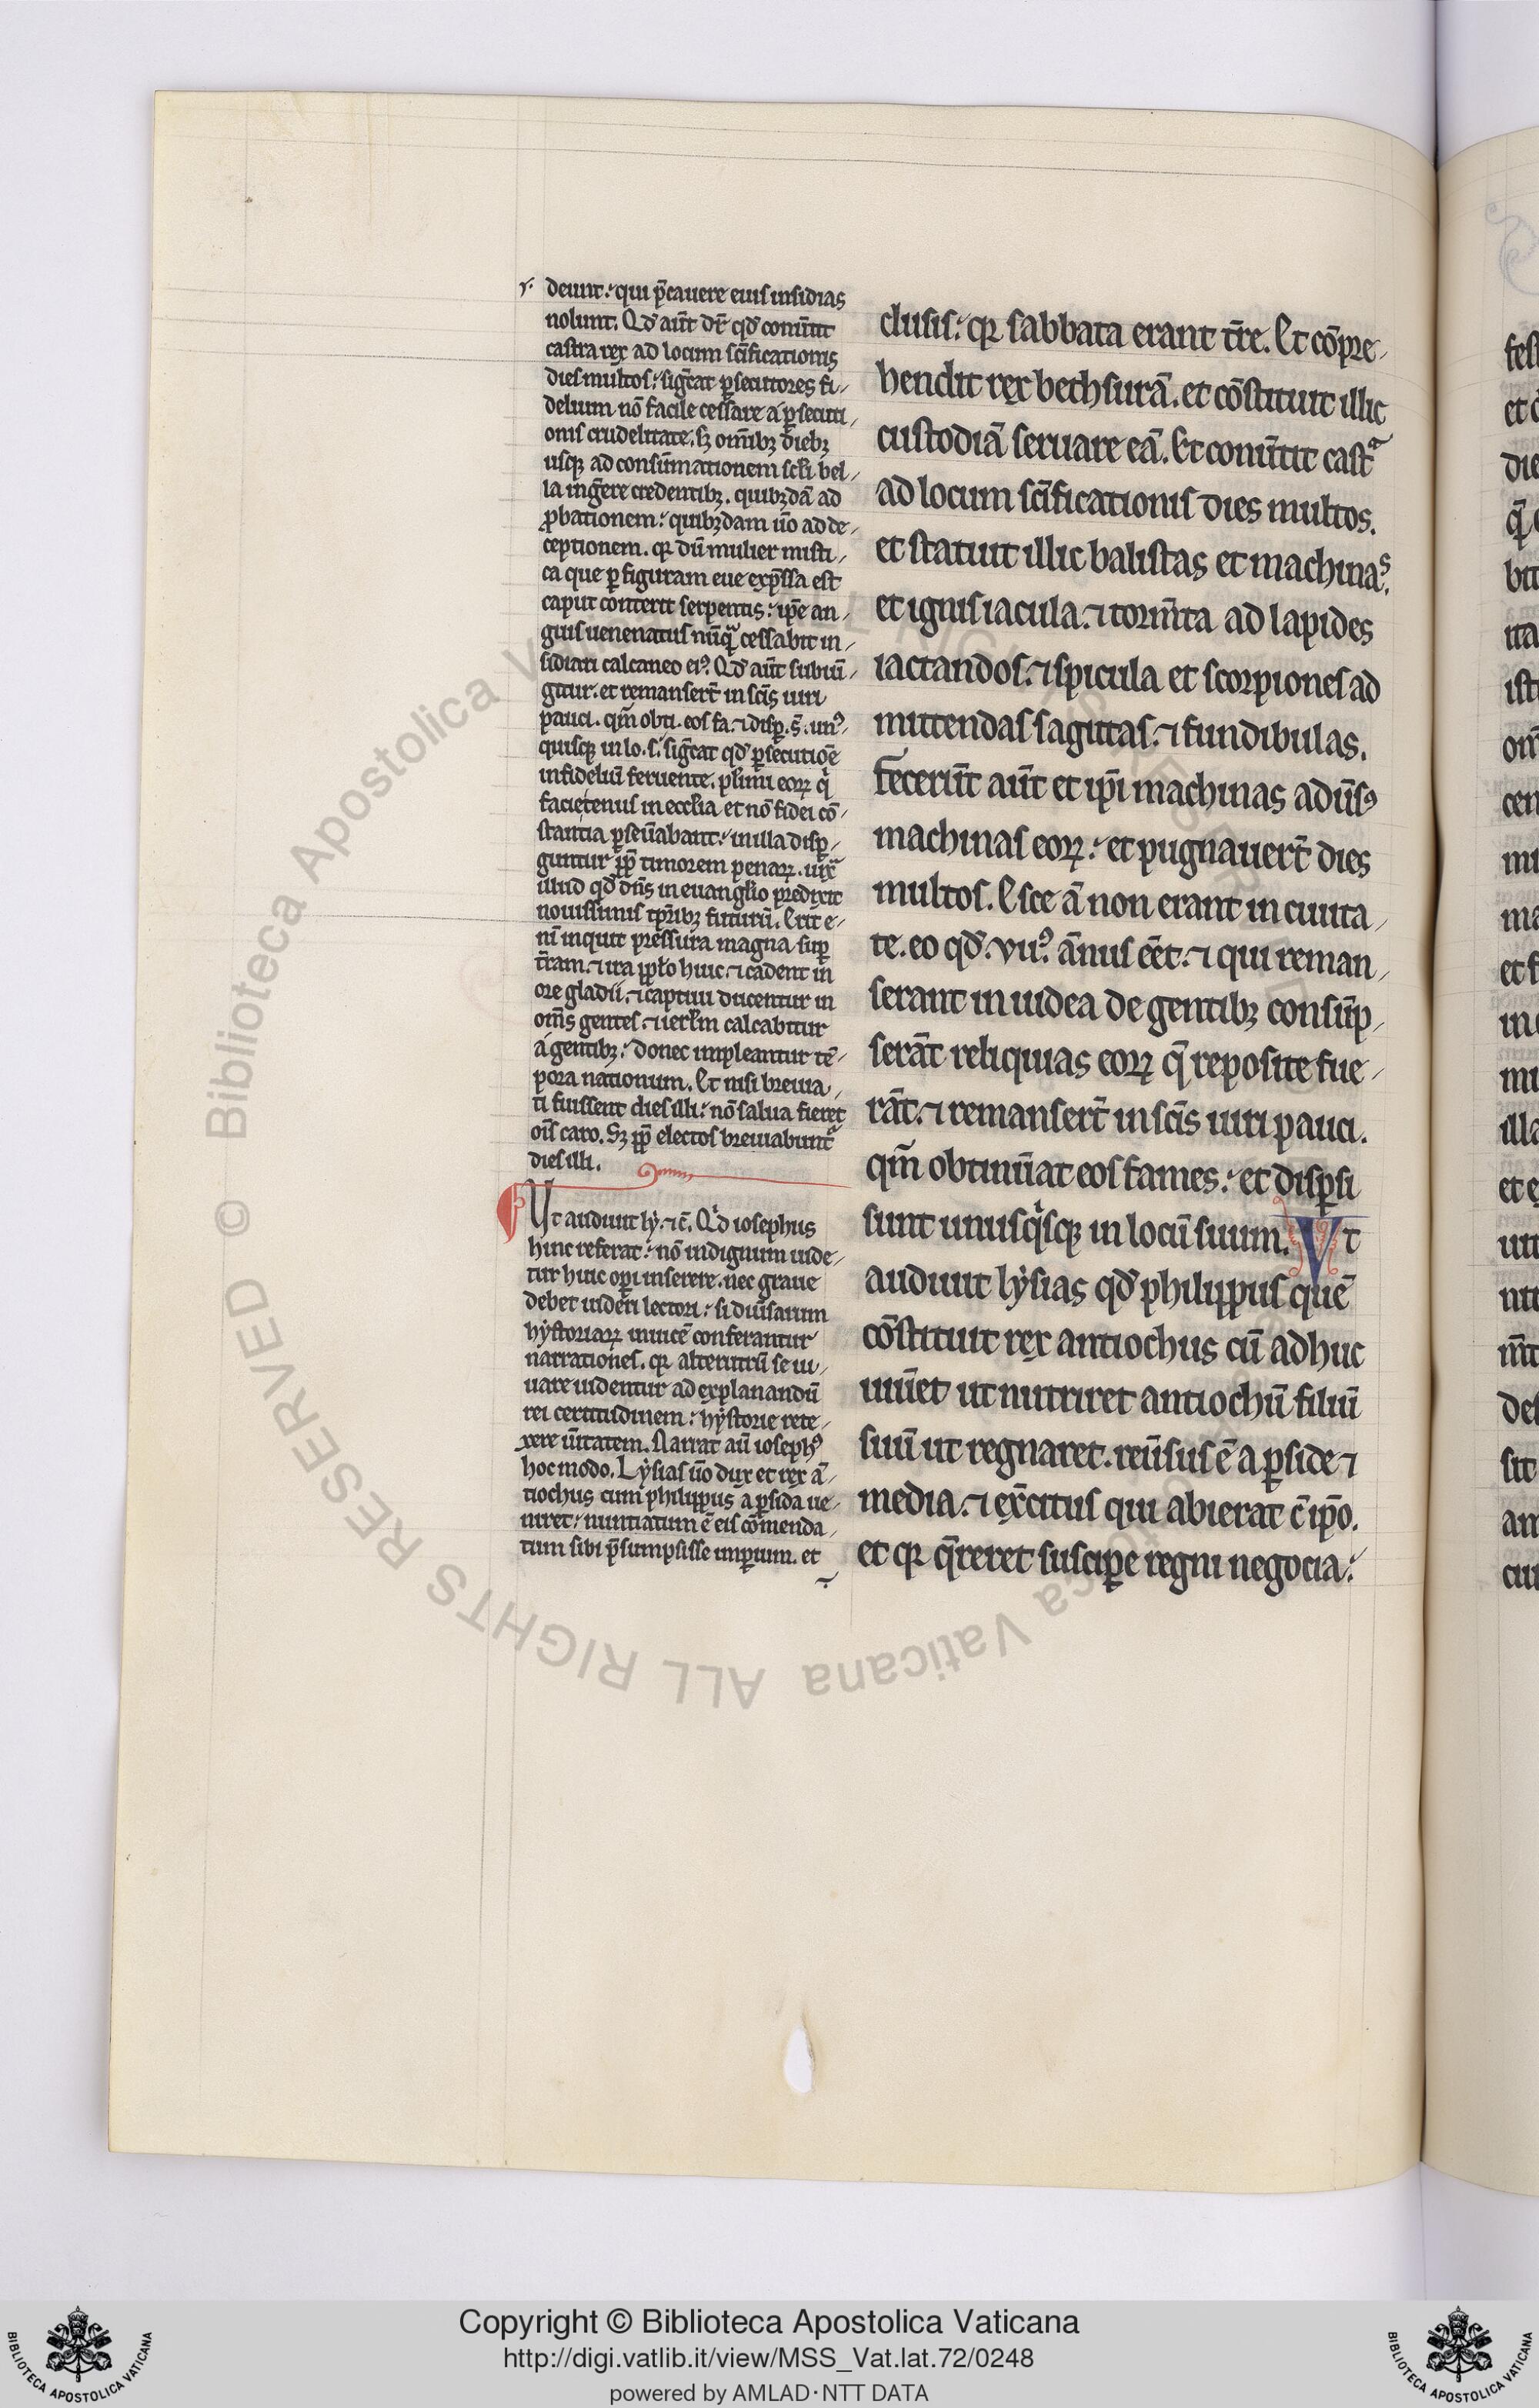 deunt. qui p̄cauere eius insidias
nolunt. Qđ aūt dr̄ qđ conūtit
castra rex ad locum scīficationis
dies multos. sigc̄at ꝑsecutores fi-
delium nō facile cessare a ꝑsecuti-
onis crudelitate. sꝫ omībꝫ diebꝫ
usqꝫ ad consūmationem scl̄i bel-
la ingere credentibꝫ. quibꝫdā ad
ꝓbationem. quibꝫdam u̅o ad de-
ceptionem. qꝛ dū mulier misti-
ca que ꝑ figuram eue exp̄ssa est
caput conterit serpentis. ip̄e an-
guis uenenatus nūqᵃ cessabit in-
sidiari calcaneo eiꝰ. Qđ aūt subiū-
gitur. et remanser̄t in scīs uiri
pauci. qm̄ obti. eos fa. ⁊ disꝑ. s̄. unꝰ-
quisqꝫ in lo. s. sigc̄at qđ ꝑsecutiōe
infideliū feruente. pl̄imi eoꝝ q̄
facietenus in eccl̄ia et nō fidei cō-
stantia ꝑseūabant. in illa disꝑ-
guntur ꝓp̄ timorem penaꝝ. iuxᵃ
illud qđ dn̄s in euangl̄io predixit
nouissimis tp̄ribꝫ futurū. Erit e-
nī inquit pressura magna suꝑ
t̄ram. ⁊ ira ppl̄o huic. ⁊ cadent in
ore gladii. ⁊ captiui ducentur in
om̄s gentes. ⁊ ierl̄m calcabitur
a gentibꝫ. donec impleantur tē-
pora nationum. Et nisi breuia-
ti fuissent dies illi. nō salua fieret
oīs caro. Sꝫ ꝓp̄ electos breuiabunt᷑
dies illi.
Ut audiuit ly. ⁊c̄. Qđ iosephus
hinc referat. nō indignum uide-
tur huic oꝑi inserere. nec graue
debet uideri lectori. si diūsarum
hystoriaꝝ inuicē conferantur
narrationes. qꝛ alterutrū se iu-
uare uidentur ad explanandū
rei certitudinem. hystorie rete-
xere ūitatem. Narrat aū iosephꝰ
hoc modo. Lysias u̅o dux et rex ā-
tiochus cum philippus a ꝑsida ue-
niret. nuntiatum ē eis cōmenda-
tum sibi p̄sumpsisse imꝑium. et
clusis. qꝛ sabbata erant t̄re. Et cōpre-
hendit rex bethsurā. et cōstituit illic
custodiā seruare eā. Et conūtit castᵃ
ad locum scīficationis dies multos.
et statuit illic balistas et machinas.
et ignis iacula. ⁊ torm̄ta ad lapides
iactandos. ⁊ spicula et scorpiones ad
mittendas sagittas. ⁊ fundibulas.
Fecerūt aūt et ip̄i machinas adūsꝰ
machinas eoꝝ. et pugnauer̄t dies
multos. Esce ā non erant in ciuita-
te. eo qđ .vııꝰ. ānus eēt. ⁊ qui reman-
serant in iudea de gentibꝫ consūp-
serāt reliquias eoꝝ q̄ reposite fue-
rāt. ⁊ remanser̄t in scīs uiri pauci.
qm̄ obtinūat eos fames. et disꝑsi
sunt unusqⁱsqꝫ in locū suum. Vt
audiuit lysias qđ philippus quē
cōstituit rex antiochus cū adhuc
uiūet ut nutriret antiochū filiū
suū ut regnaret. reūsus ē a ꝑside ⁊
media. ⁊ exc̄itus qui abierat c̄ ip̄o.
et qꝛ q̄reret susciꝑe regni negocia.
© Biblioteca Apostolica Vaticana ALL RIGHTS RESERVED
Copyright © Biblioteca Apostolica Vaticana
http://digi.vatlib.it/view/MSS_Vat.lat.72/0248
powered by AMLAD·NTT DATA
BIBLIOTECA APOSTOLICA VATICANA
BIBLIOTECA APOSTOLICA VATICANA